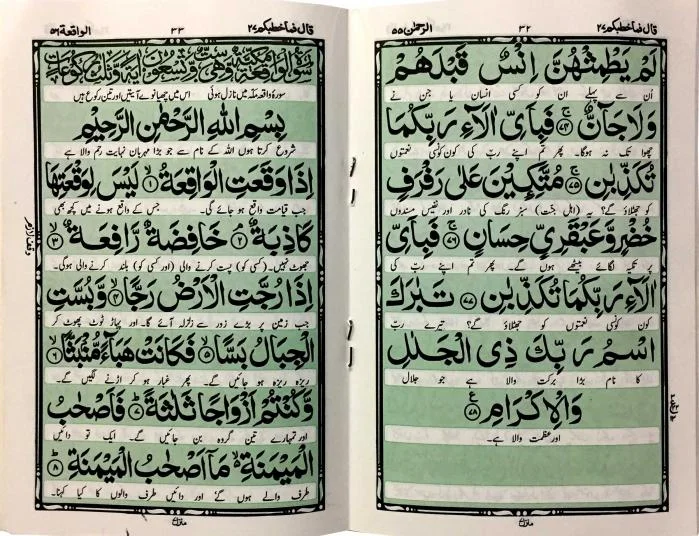 قال فما خطبکم ۲۷
۳۲
الرحمٰن ۵۵
لَمْ يَطْمِثْهُنَّ اِنْسٌ قَبْلَهُمْ
اُن سے پہلے ان کو کسی انسان یا جن نے
وَلَا جَآنٌّ ۚ﴿۷۴﴾ فَبِاَيِّ اٰلَآءِ رَبِّكُمَا
چھوا تک نہ ہوگا۔ پھر تم اپنے ربّ کی کون کونسی نعمتوں
تُكَذِّبٰنِ ۚ﴿۷۵﴾ مُتَّكِـِٕيْنَ عَلٰى رَفْرَفٍ
کو جھٹلاؤ گے؟ یہ (اہلِ جنّت) سبز رنگ کی نادر اور نفیس مسندوں
خُضْرٍ وَّعَبْقَرِيٍّ حِسَانٍ ۚ﴿۷۶﴾ فَبِاَيِّ
پر تکیہ لگائے بیٹھے ہوں گے۔ پھر تم اپنے ربّ کی
اٰلَآءِ رَبِّكُمَا تُكَذِّبٰنِ ﴿۷۷﴾ تَبٰرَكَ
کون کونسی نعمتوں کو جھٹلاؤ گے؟ تیرے ربّ
اسْمُ رَبِّكَ ذِي الْجَلٰلِ
کا نام بڑا برکت والا ہے جو جلال
وَالْاِكْرَامِ ﴿۷۸﴾ ع
اور عظمت والا ہے۔
منزل
قال فما خطبکم ۲۷
۳۳
الواقعة ۵۶
سورة الواقعة مكية وهي ست وتسعون اية وثلث ركوعات
سورۂ واقعہ مکّہ میں نازل ہوئی اس میں چھیانوے آیتیں اور تین رکوع ہیں
بِسْمِ اللّٰهِ الرَّحْمٰنِ الرَّحِيْمِ
شروع کرتا ہوں اللہ کے نام سے جو بڑا مہربان نہایت رحم والا ہے
اِذَا وَقَعَتِ الْوَاقِعَةُ ﴿۱﴾ لَيْسَ لِوَقْعَتِهَا
جب قیامت واقع ہو جائے گی۔ جس کے واقع ہونے میں کچھ بھی
كَاذِبَةٌ ﴿۲﴾ خَافِضَةٌ رَّافِعَةٌ ﴿۳﴾
جھوٹ نہیں۔ (کسی کو) پست کرنے والی (اور کسی کو) بلند کرنے والی ہوگی۔
اِذَا رُجَّتِ الْاَرْضُ رَجًّا ﴿۴﴾ وَّبُسَّتِ
جب زمین پر بڑے زور سے زلزلہ آئے گا۔ اور پہاڑ ٹوٹ پھوٹ کر
الْجِبَالُ بَسًّا ﴿۵﴾ فَكَانَتْ هَبَآءً مُّنْۢبَثًّا ﴿۶﴾
ریزہ ریزہ ہو جائیں گے۔ پھر غبار ہو کر اڑنے لگیں گے۔
وَّكُنْتُمْ اَزْوَاجًا ثَلٰثَةً ﴿۷﴾ فَاَصْحٰبُ
اور تمہارے تین گروہ بن جائیں گے۔ ایک تو دائیں
الْمَيْمَنَةِ مَآ اَصْحٰبُ الْمَيْمَنَةِ ﴿۸﴾
طرف والے ہوں گے اور دائیں طرف والوں کا کیا کہنا۔
منزل